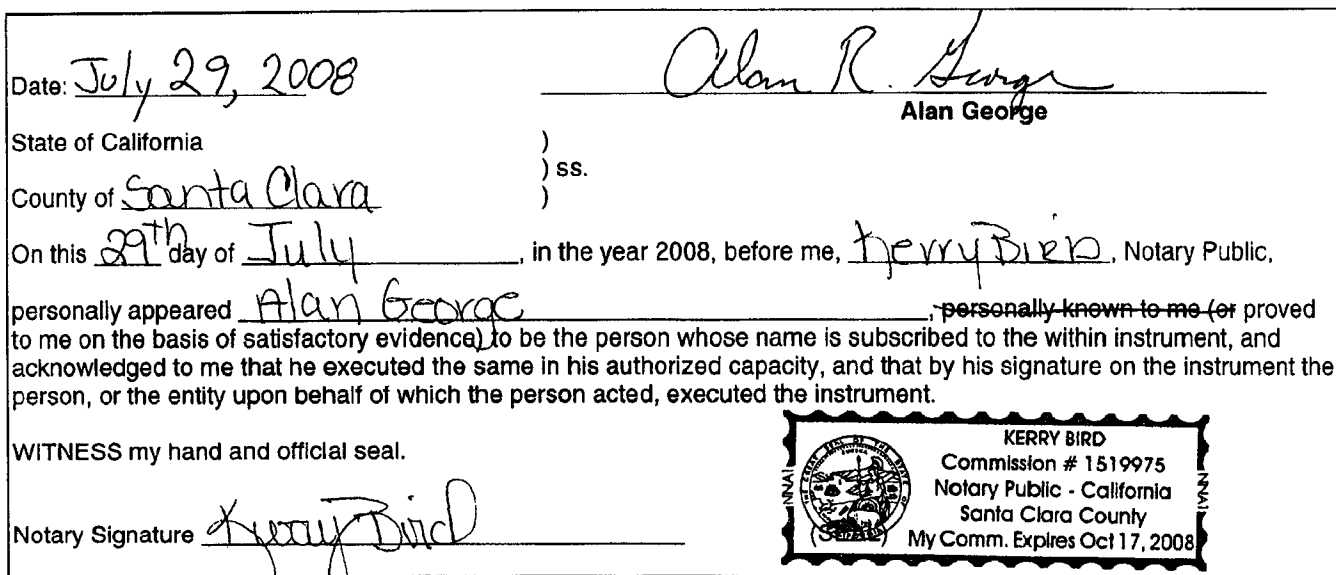 Date: July 29, 2008 Alan R. George
Alan George
State of California )
) ss.
County of Santa Clara )
On this 29th day of July, in the year 2008, before me, Kerry Bird, Notary Public,
personally appeared Alan George, personally known to me (or proved
to me on the basis of satisfactory evidence) to be the person whose name is subscribed to the within instrument, and
acknowledged to me that he executed the same in his authorized capacity, and that by his signature on the instrument the
person, or the entity upon behalf of which the person acted, executed the instrument.
WITNESS my hand and official seal.
Notary Signature Kerry Bird
KERRY BIRD
Commission # 1519975
Notary Public - California
Santa Clara County
(Seal) My Comm. Expires Oct 17, 2008
NNA
NNA